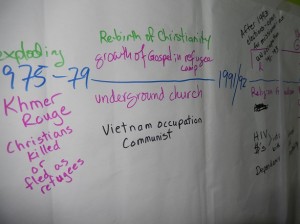 exploding
975-79
Khmer
Rouge
Christians
killed
or
fled as
refugees
Rebirth of Christianity
growth of Gospel in refugee
camp
underground church
Vietnam occupation
Communist
1991/92
After 1993
HIV
Dependency